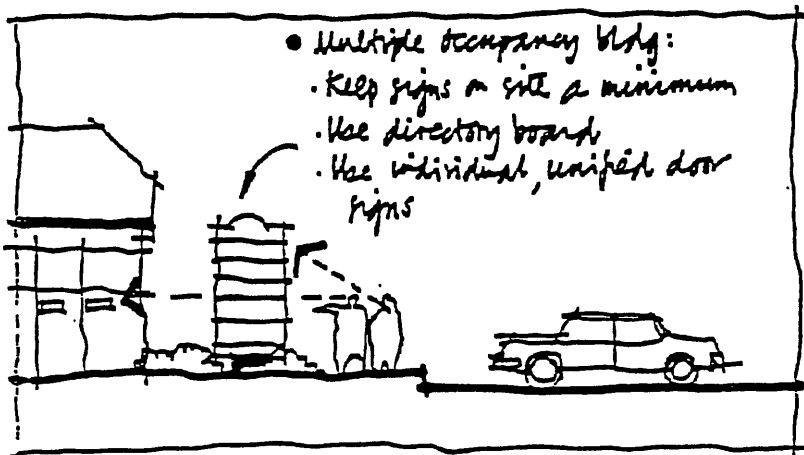 • Multiple occupancy bldg:
· Keep signs on site a minimum
· Use directory board
· Use individual, unified door
signs